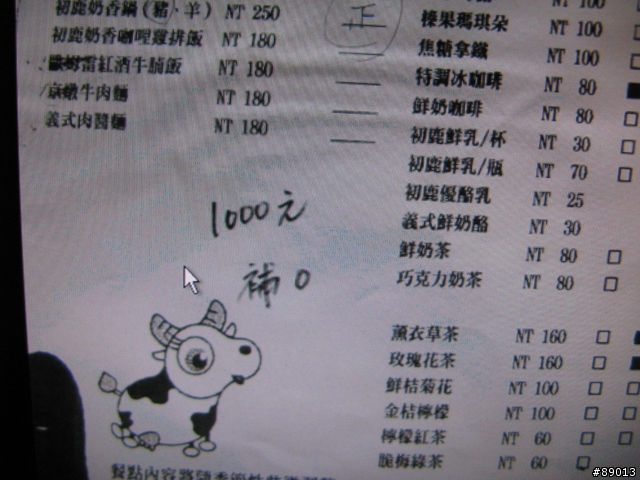 初鹿奶香鍋(豬·羊) NT 250
正
初鹿奶香咖哩雞排飯 NT 180
雷紅酒牛腩飯 NT 180
京燉牛肉麵 NT 180
義式肉醬麵 NT 180
NT 100
榛果瑪琪朵 NT 100
焦糖拿鐵 NT 100
特調冰咖啡 NT 80
鮮奶咖啡 NT 80
初鹿鮮乳/杯 NT 30
初鹿鮮乳/瓶 NT 70
初鹿優酪乳 NT 25
義式鮮奶酪 NT 30
鮮奶茶 NT 80
巧克力奶茶 NT 80
1000元
補0
薰衣草茶 NT 160
玫瑰花茶 NT 160
鮮桔菊花 NT 100
金桔檸檬 NT 100
檸檬紅茶 NT 60
脆梅綠茶 NT 60
餐點內容將隨季節性
#89013